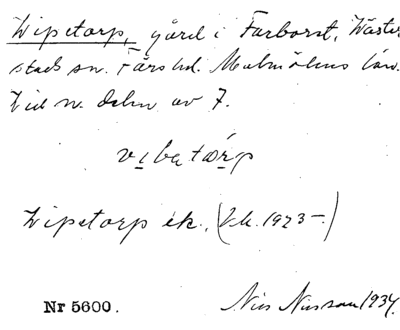 Vipetorp, gård i Farborst, Wäster
stads sn. Färs hd. Malmöhus län.
Vid n. delen av F.
vɩbatǿrp
Vipetorp ek. (J.k. 1923–.)
Nr 5600.
Nils Nilsson 1934.